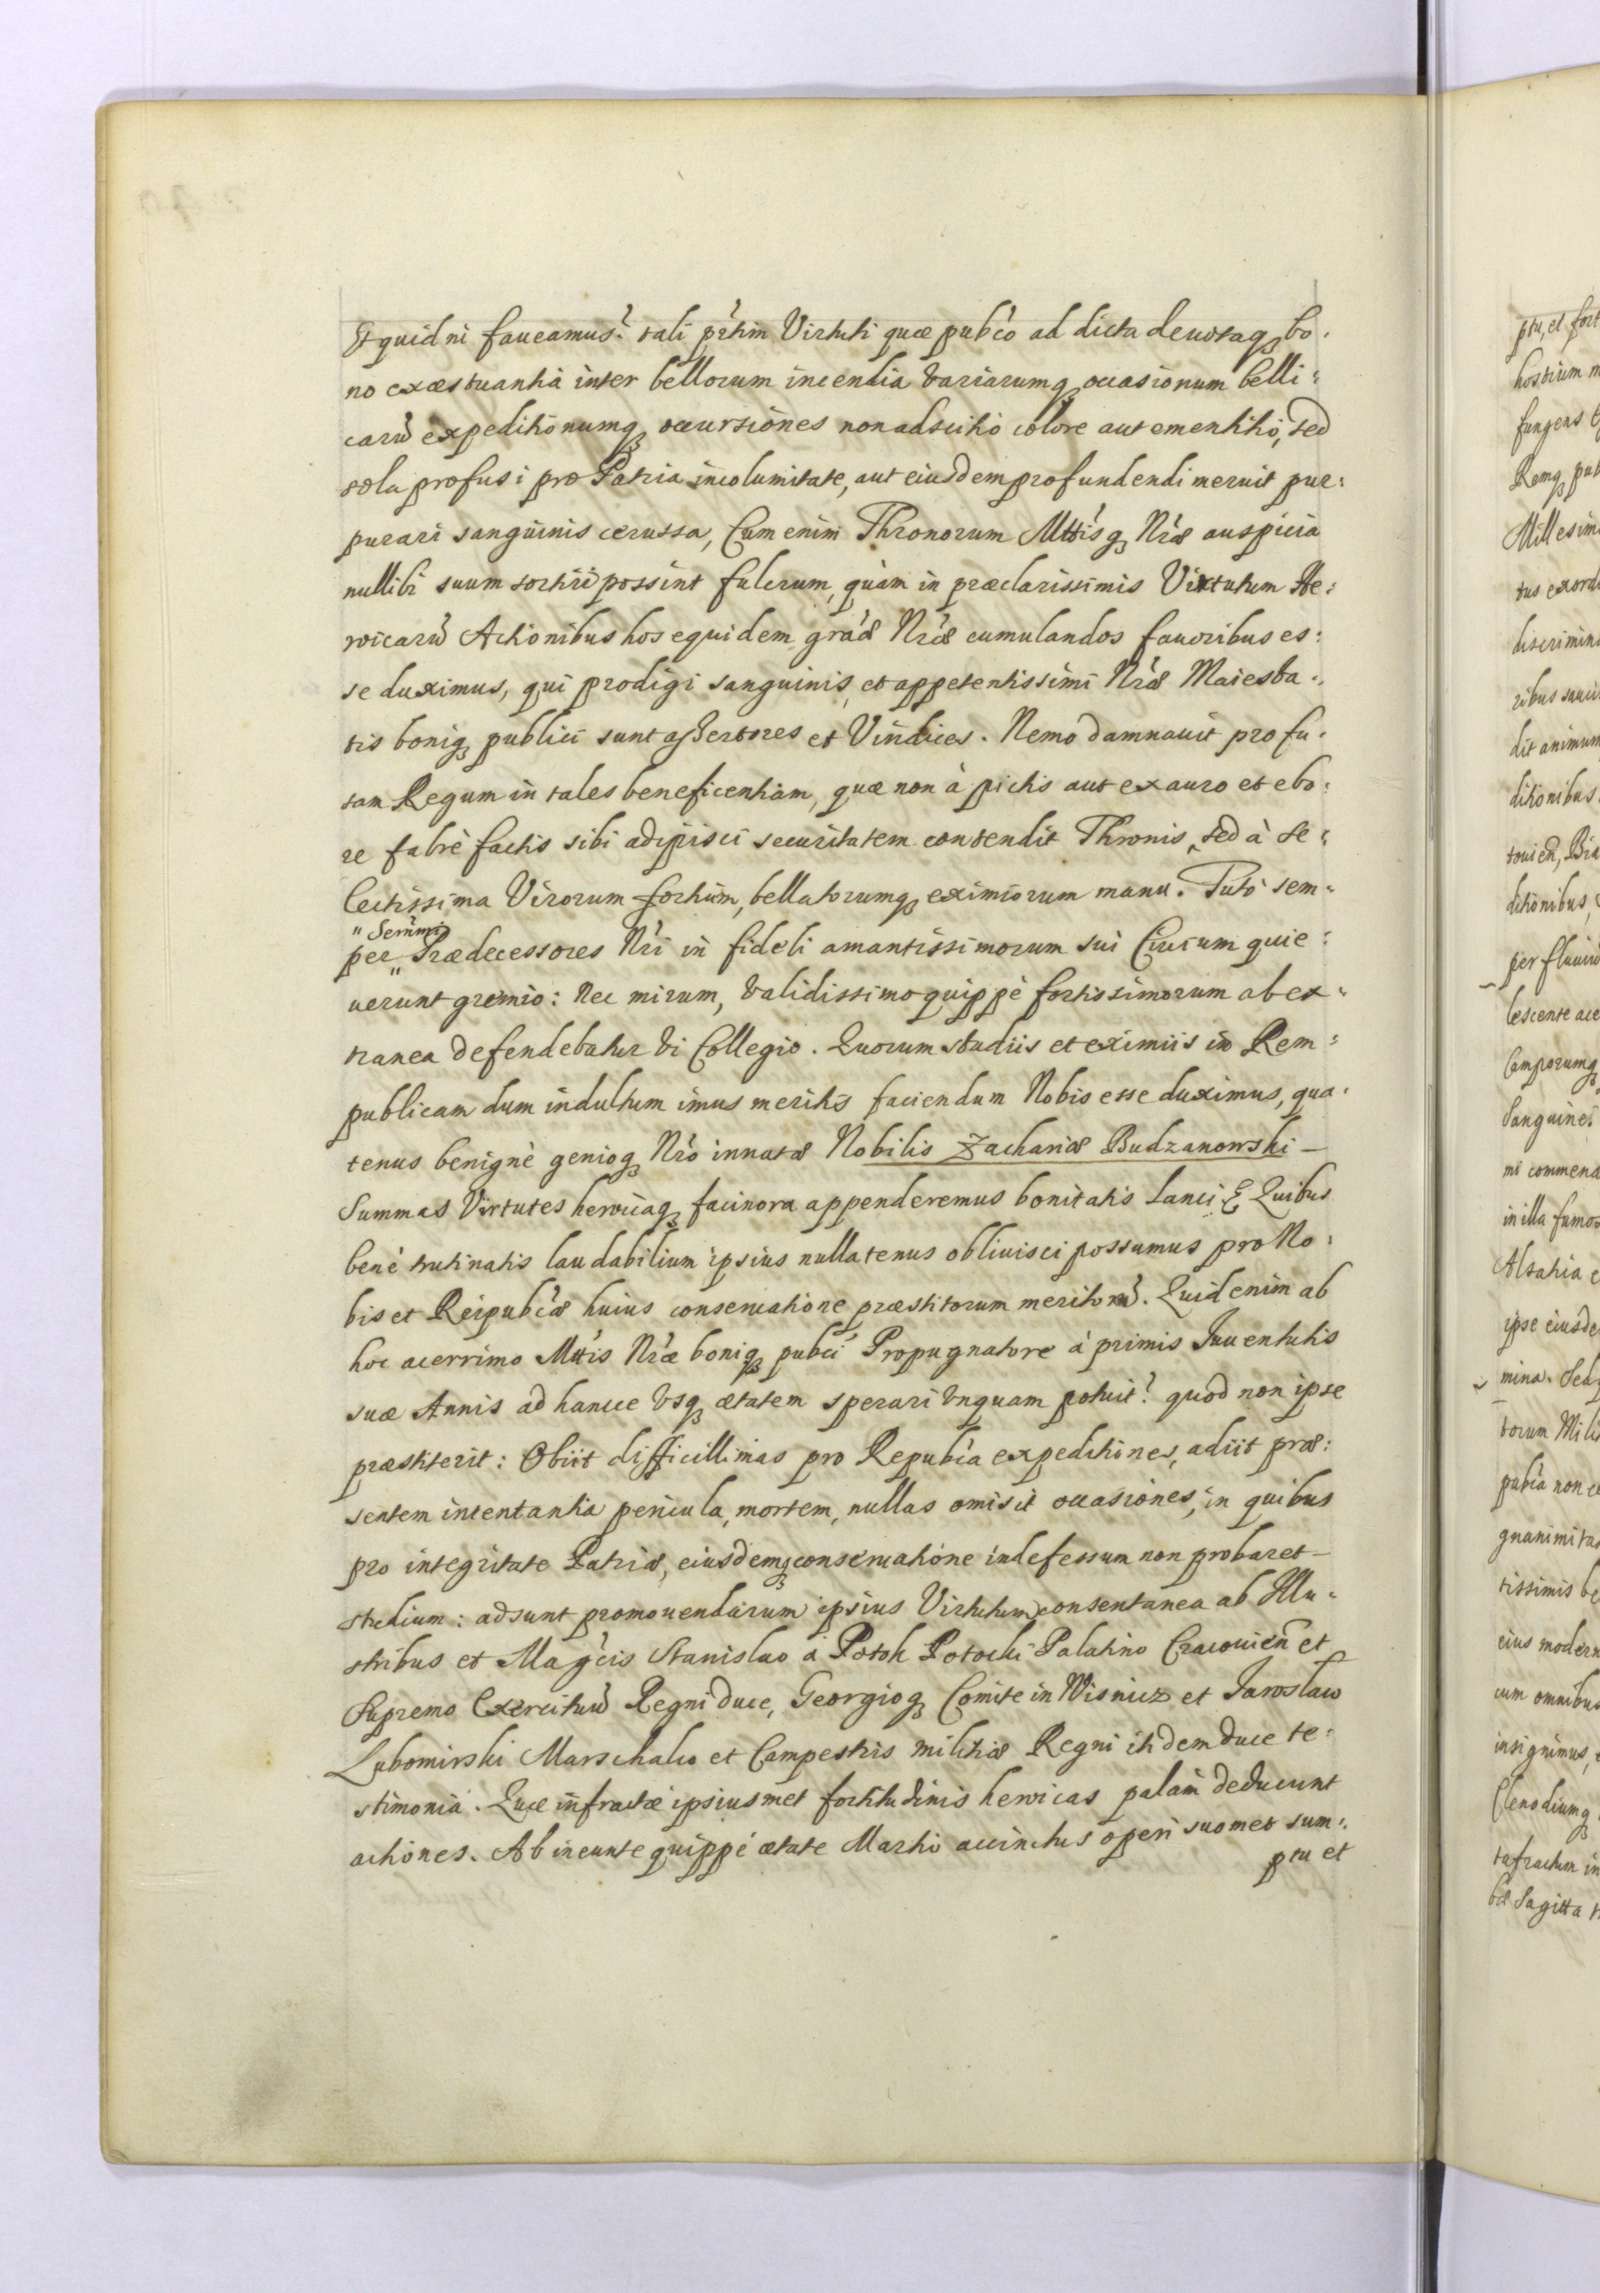 Et quid ni faueamus? tali prtim Virtuti quæ pubco ad dicta deuotaq bo:
no exæstuantia inter bellorum incendia variarumq occasionum belli:
carũ expeditionumq occursiones non adscitio colore aut ementitio, sed
sola profusi pro Patria incolumitate, aut eiusdem profundendi meruit pur:
purari sanguinis cerussa, Cum enim Thronorum Mttisq Nræ auspicia
nullibi suum sortiri possint fulcrum, quàm in præclarissimis Virtutum He:
roicarũ Actionibus hos equidem gráæ Nræ cumulandos fauoribus es:
se duximus, qui prodigi sanguinis, et appetentissimi Nræ Maiesta:
tis boniq publici sunt assertores et Vindices. Nemo damnauit profu:
sam Regum in tales beneficentiam, quæ non à pictis aut ex auro et ebo:
re fabrè factis sibi adipisci securitatem contendit Thronis, sed à se:
lectissima Virorum fortium, bellatorumq eximiorum manu. Tuto sem:
" Sermi
per " Prædecessores Nri in fideli amantissimorum sui Ciuium quie:
uerunt gremio: Nec mirum, validissimo quippè fortissimorum ab ex:
tranea defendebatur vi Collegio. Quorum studiis et eximiis in Rem:
publicam dum indultum imus meritis faciendum Nobis esse duximus, qua:
tenus benignè genioq Nro innatæ Nobilis Zachariæ Budzanowski –
Summas Virtutes heroicaq facinora appenderemus bonitatis Lanci & Quibus
benè trutinatis laudabilium ipsius nullatenus obliuisci possumus pro No:
bis et Reipubcæ huius conseruatione præstitorum meritorũ. Quid enim ab
hoc acerrimo Mttis Nræ boniq pubci Propugnatore à primis Iuuentutis
suæ Annis ad hancce vsq ætatem sperari vnquam potuit? quod non ipse
præstiterit: Obiit difficillimas pro Repubca expeditiones, adiit præ:
sentem intentantia pericula, mortem, nullas omisit occasiones, in quibus
pro integritate Patriæ, eiusdemq conseruatione indefessum non probaret –
studium: adsunt promouendarum ipsius Virtutum consentanea ab Illu:
stribus et Magcis Stanislao à Potok Potocki Palatino Cracouien et
Supremo Exercituũ Regni duce, Georgioq Comite in Wisnicz et Iaroslaw
Lubomirski Marschalco et Campestris militiæ Regni itidem duce te:
stimonia. Quæ infractæ ipsiusmet fortitudinis heroicas palàm deducunt
actiones. Ab ineunte quippè ætate Martio accinctus operi suomet sum:
ptu et
ptu, et fort
hostium m
fungens
Remq pub
Millesim
tus exord
discrimin
ribus sauci
dit animum
ditionibus
touien, Bia
ditionibus,
per fluuiũ
lescente ace
Camporumq
Sanguine
mi commend
in illa fumo
Alsatia e
ipse eiusde
mina. Sed
torum Mili
pubca non
gnanimitas
tissimis be
eius modern
cum omnibus
insignimus,
Clenodiumq
tafractum in
bæ Sagitta